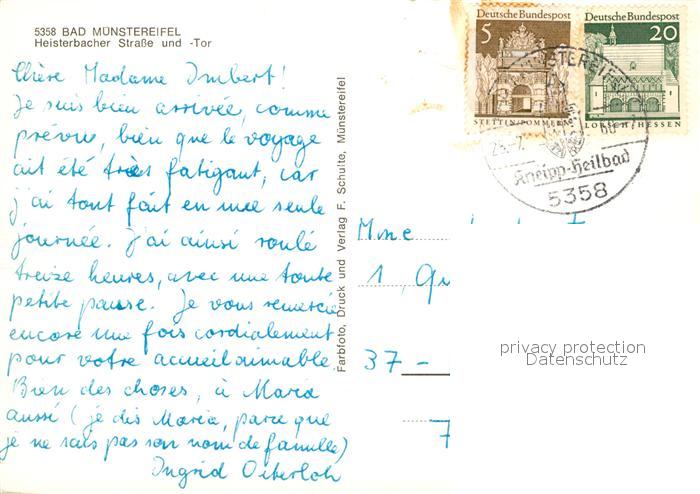 5358 BAD MÜNSTEREIFEL
Heisterbacher Straße und -Tor
Chère Madame Imbert!
Je suis bien arrivée, comme
prévu, bien que le voyage
ait été très fatigant, car
j'ai tout fait en une seule
journée. j'ai ainsi roulé
treize heures, avec une toute
petite pause. Je vous remercie
encore une fois cordialement
pour votre accueil aimable.
Bien des choses, à Maria
aussi (je dis Maria, parce que
je ne sais pas son nom de famille)
Ingrid Oeterloh
Farbfoto, Druck und Verlag F. Schulte, Münstereifel
Deutsche Bundespost
5
STETTIN/POMMERN
Deutsche Bundespost
20
LORSCH/HESSEN
Kneipp-Heilbad
5358
Mme
1,
37-
privacy protection
Datenschutz